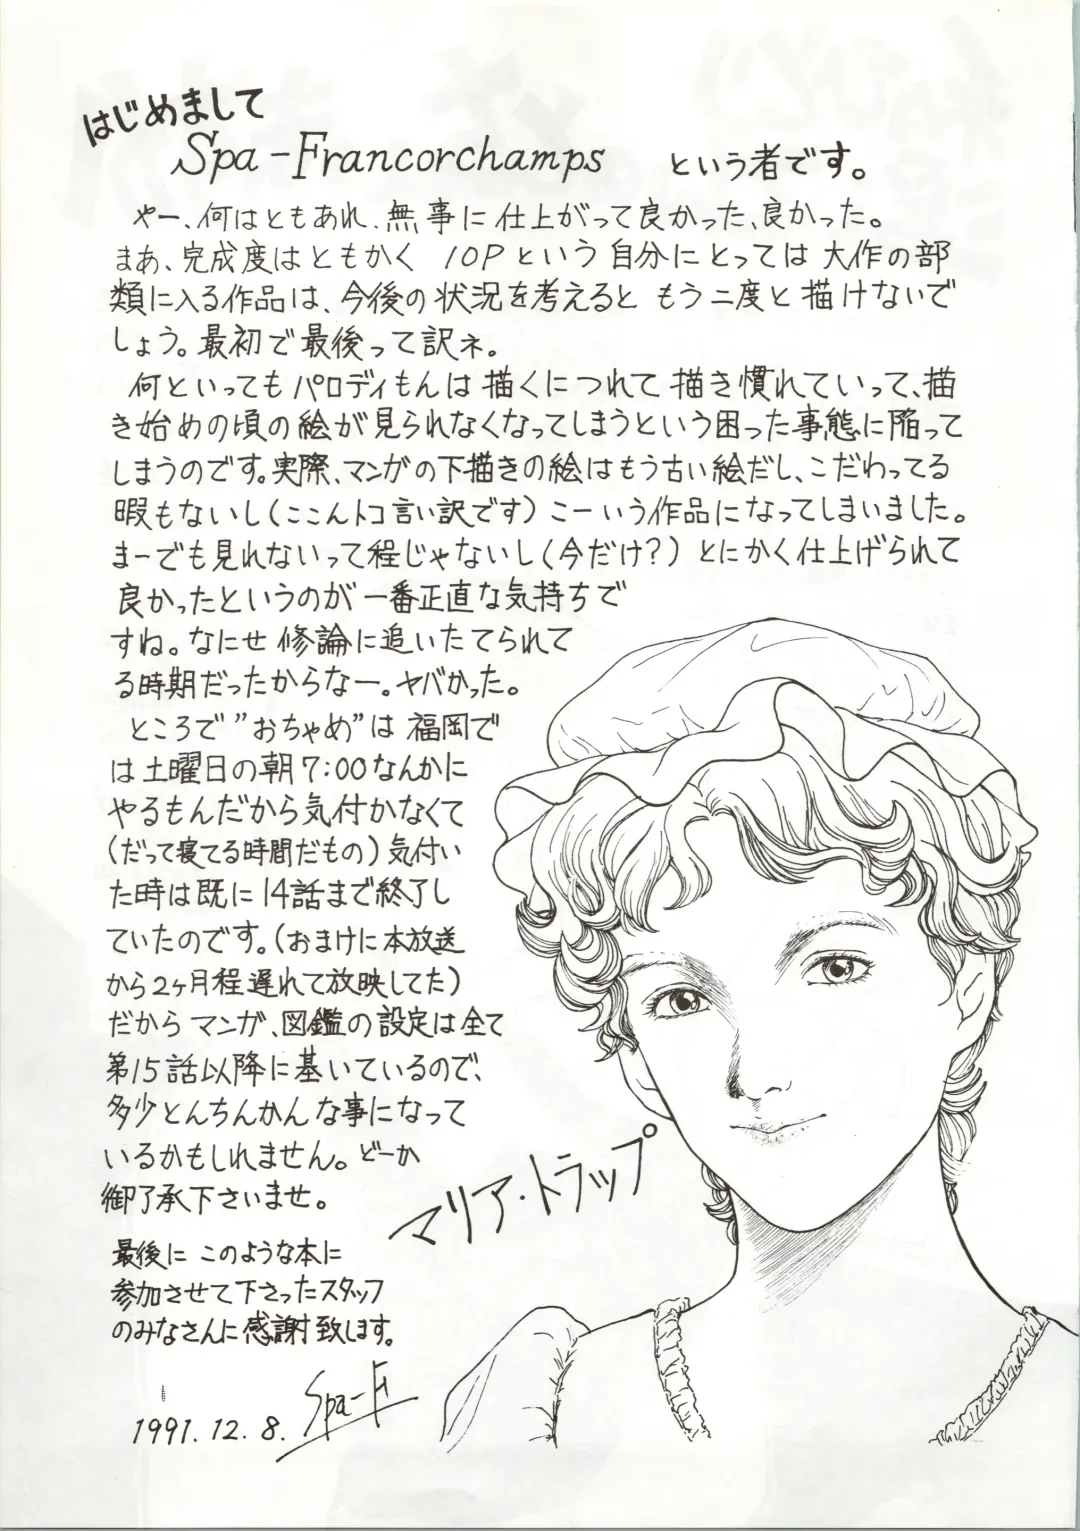 はじめまして
Spa-Francorchamps という者です。
やー、何はともあれ、無事に仕上がって良かった、良かった。
まあ、完成度はともかく 10Pという自分にとっては大作の部
類に入る作品は、今後の状況を考えると もう二度と描けないで
しょう。最初で最後って訳ネ。
何といってもパロディもんは描くにつれて描き慣れていって、描
き始めの頃の絵が見られなくなってしまうという困った事態に陥って
しまうのです。実際、マンガの下描きの絵はもう古い絵だし、こだわってる
暇もないし(ここんトコ言い訳です)こーいう作品になってしまいました。
まーでも見れないって程じゃないし(今だけ?)とにかく仕上げられて
良かったというのが一番正直な気持ちで
すね。なにせ修論に追いたてられて
る時期だったからなー。ヤバかった。
ところで"おちゃめ"は福岡で
は土曜日の朝7:00なんかに
やるもんだから気付かなくて
(だって寝てる時間だもの)気付い
た時は既に14話まで終了し
ていたのです。(おまけに本放送
から2ヶ月程遅れて放映してた)
だからマンガ、図鑑の設定は全て
第15話以降に基いているので、
多少とんちんかんな事になって
いるかもしれません。どーか
御了承下さいませ。
マリア・トラップ
最後に このような本に
参加させて下さったスタッフ
のみなさんに感謝致します。
Spa-F
1991.12.8.